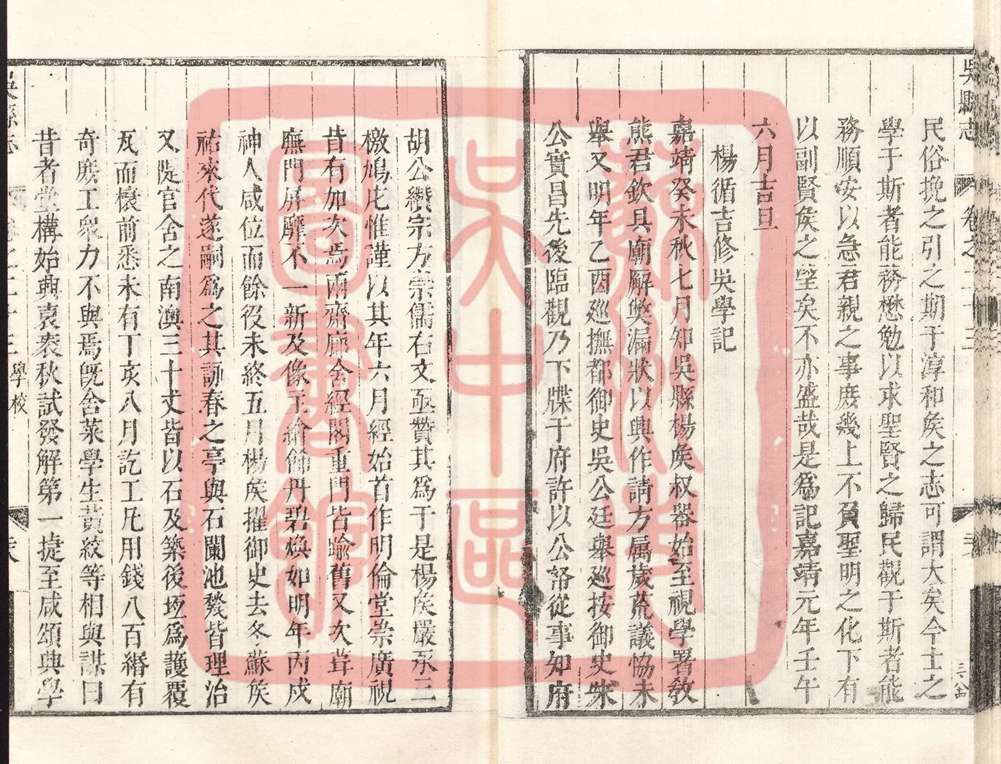 吳縣志
卷之十三
民俗挽之引之期于淳和矦之志可謂大矣今士之
學于斯者能務懋勉以求聖賢之歸民觀于斯者能
務順安以急君親之事庶幾上不負聖明之化下有
以副賢矦之望矣不亦盛哉是爲記嘉靖元年壬午
六月吉旦
楊循吉修吳學記
嘉靖癸未秋七月知吳縣楊矦叔器始至視學署敎
熊君欽具廟廨獘漏狀以興作請方属歲荒議恊未
舉又明年乙酉廵撫都御史吳公廷舉廵按御史朱
公實昌先後臨觀乃下牒于府許以公帑從事知府
胡公纘宗方崇儒右文亟贊其爲于是楊矦嚴承三
檄鳩庀惟謹以其年六月經始首作明倫堂崇廣視
昔有加次焉兩齋廊舍經閣重門皆踰舊又次葺廟
廡門屏靡不一新及像王繪飾丹碧煥如明年丙戌
神人咸位而餘役未終五月楊矦擢御史去冬蘇矦
祐來代遂嗣爲之其詠春之亭與石闌池甃皆理治
又陡官舍之南澳三十丈皆以石及築後垣爲護覆
瓦而櫰前悉未有丁亥八月訖工凡用錢八百緡有
奇麃工衆力不與焉旣舍菜學生黃紋等相與謀曰
昔者堂構始興袁袠秋試發解第一捷至咸頌與學
吳縣志
卷之十三
學校
蘇州市吳中區圖書館